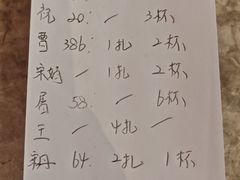 祝 20: / 3杯
曹 386: 1扎 2杯
宋娟 / 1扎 2杯
屠 58: / 6杯
王 / 4扎 /
64: 2扎 1杯